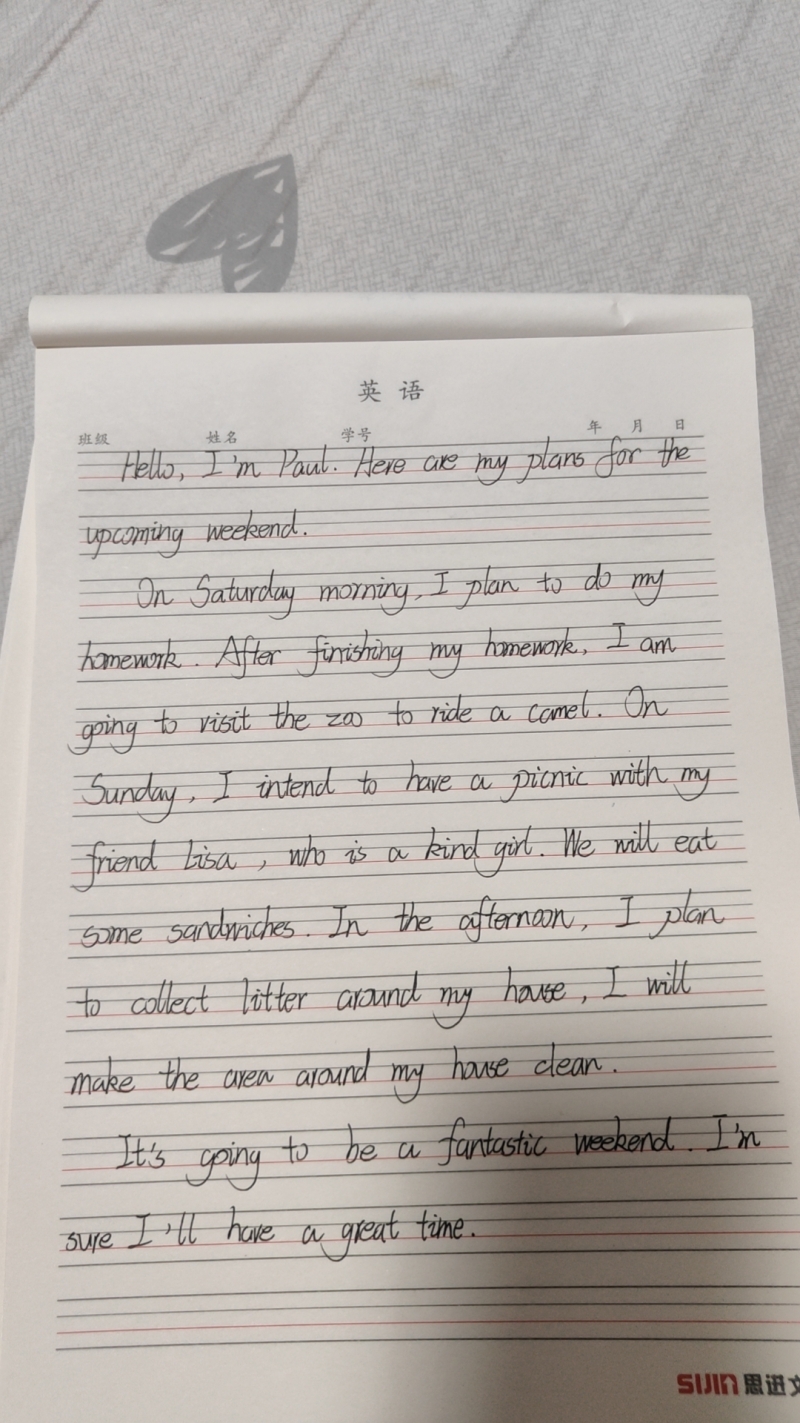 英语
班级 姓名 学号 年 月 日
Hello, I'm Paul. Here are my plans for the
upcoming weekend.
On Saturday morning, I plan to do my
homework. After finishing my homework, I am
going to visit the zoo to ride a camel. On
Sunday, I intend to have a picnic with my
friend Lisa, who is a kind girl. We will eat
some sandwiches. In the afternoon, I plan
to collect litter around my house, I will
make the area around my house clean.
It's going to be a fantastic weekend. I'm
sure I'll have a great time.
SIJIN 思进文